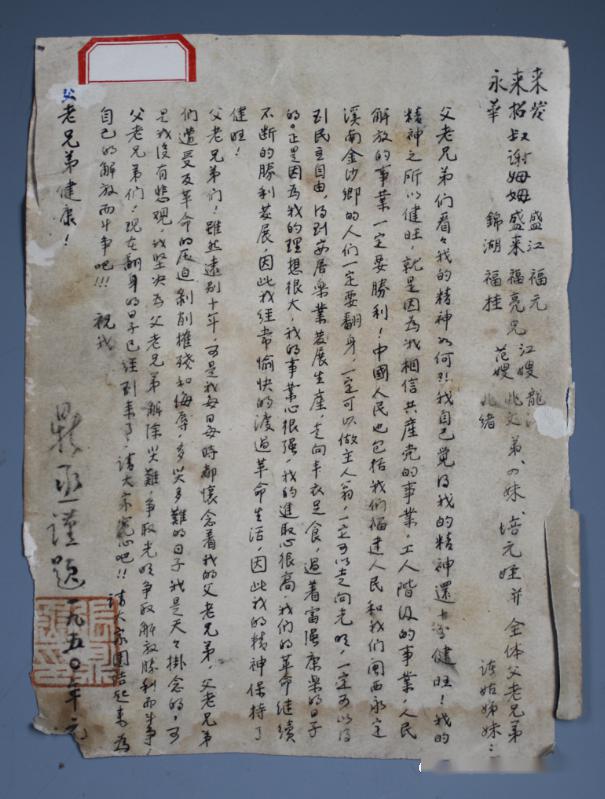 来发 盛江 福元 江嫂 龙
来招叔 谢姆姆 盛来 福亮兄 兆文弟、四妹、培元姪并 全体父老兄弟
永華 錦湖 福挂 范嫂 兆绪 诸姑姊妹：
父老兄弟们看々我的精神如何?!我自己觉得我的精神還十分健旺！我的
精神之所以健旺，就是因為我相信共産党的事業，工人階级的事業，人民
解放的事業一定要勝利！中國人民也包括我们福建人民和我们闽西永定
溪南金沙鄉的人们一定要翻身，一定可以做主人翁，一定可以走向光明，一定可以得
到民主自由，得到安居樂業发展生産，走向丰衣足食，過着富强康樂的日子
的。正是因為我的理想很大，我的事業心很强，我的進取心很高，我们的革命继续
不断的勝利发展，因此我经常愉快的渡過革命生活，因此我的精神保持了
健旺！
父老兄弟们！雖然遠别十年，可是我每日每時都懷念着我的父老兄弟，父老兄弟
们遭受反革命的压迫剥削摧殘和侮辱，多災多難的日子我是天々掛念的，可
是我没有悲观，我坚决為父老兄弟解除災難，争取光明争取解放勝利而斗争，
父老兄弟们！现在翻身的日子已经到来了，请大家寬心吧!! 请大家團结起来為
自己的解放而斗争吧!!! 祝我
父老兄弟健康！
丞謹題 一九五〇年元